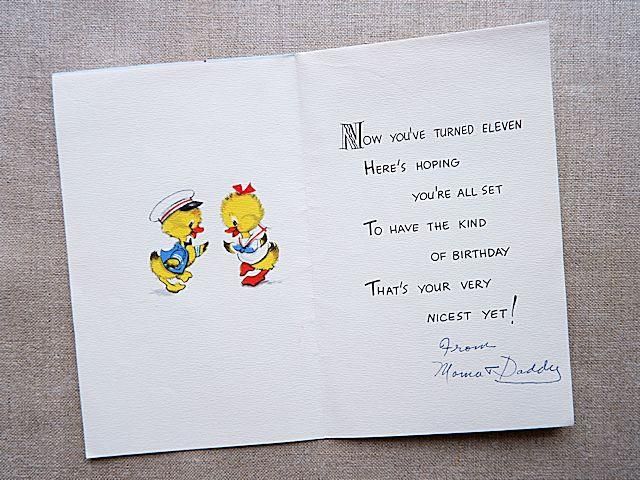 Now you've turned eleven
Here's hoping
you're all set
To have the kind
of birthday
That's your very
nicest yet!
From
Moma & Daddy